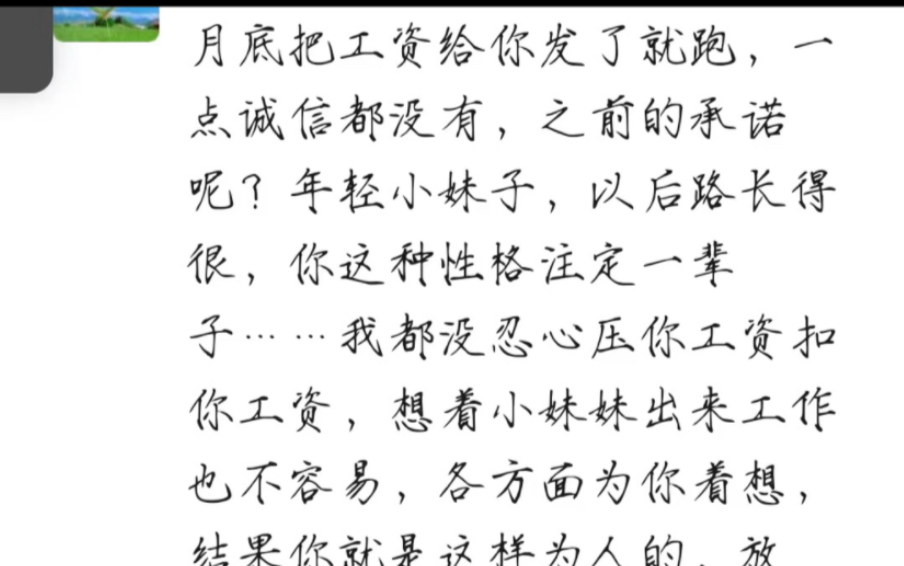 月底把工资给你发了就跑，一
点诚信都没有，之前的承诺
呢？年轻小妹子，以后路长得
很，你这种性格注定一辈
子……我都没忍心压你工资扣
你工资，想着小妹妹出来工作
也不容易，各方面为你着想，
结果你就是这样为人的，放